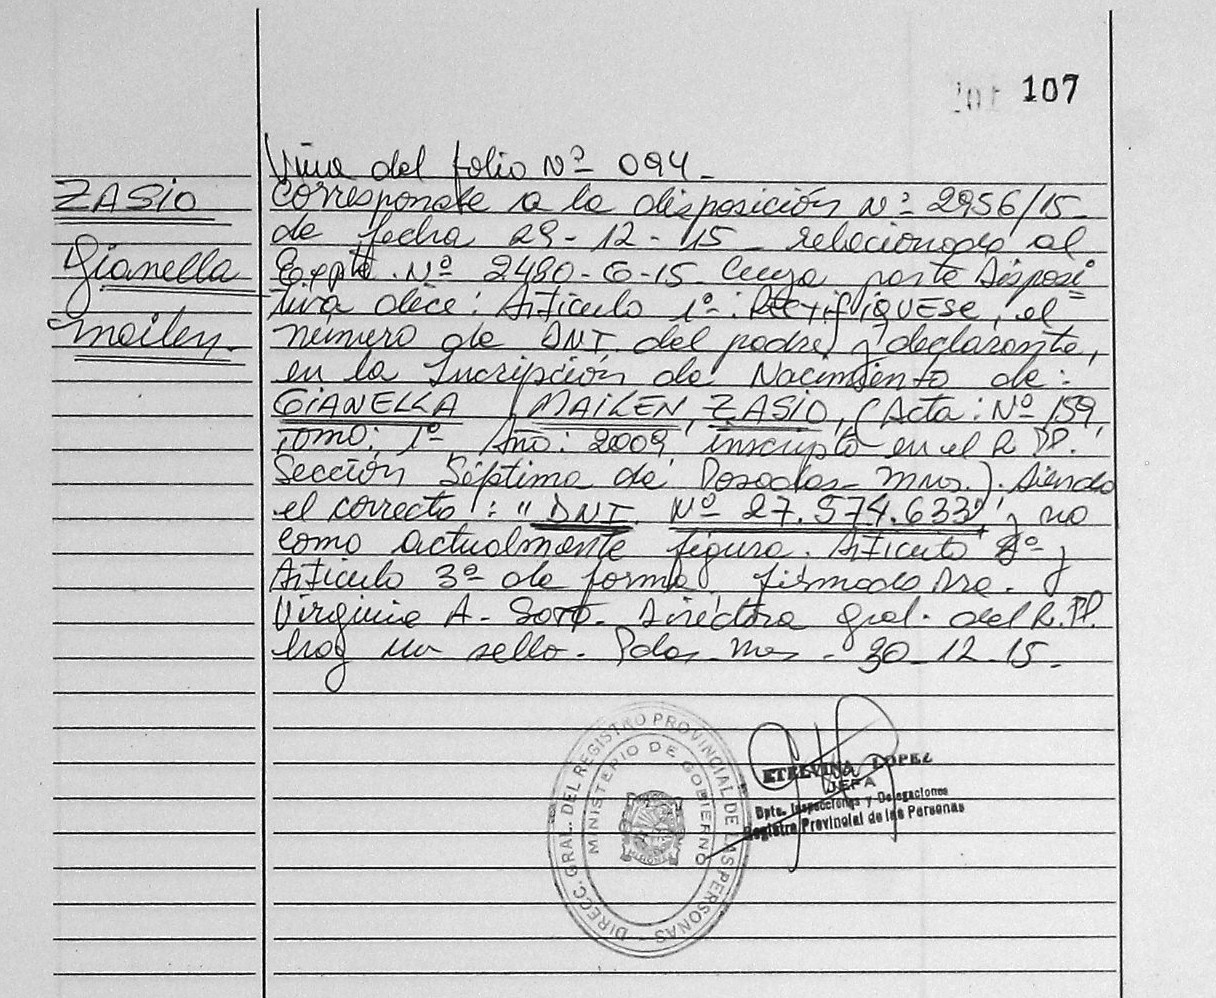 107
ZASIO
Gianella
Mailen.
Viene del folio Nº 094.
Corresponde a la disposición Nº 2956/15
de fecha 29-12-15 relacionado al
Expte. Nº 2480-G-15 Cuya parte Disposi
tiva dice: Artículo 1º: RECTIFIQUESE, el
número de DNI del padre y declarante,
en la Incripción de Nacimiento de:
GIANELLA MAILEN ZASIO, (Acta: Nº 159,
Tomo: 1º Año: 2009 inscripto en el R.PP.
Sección Séptima de Posadas Mnes.). Siendo
el correcto: "DNI Nº 27.574.633" y no
como actualmente figura. Artículo 2º y
Artículo 3º de forma, firmado Dra.
Virginia A. Soto. Directora Gral. del R.PP.
hay un sello. Pdas. Mnes - 30-12-15.
DIRECC. GRAL. DEL REGISTRO PROVINCIAL DE LAS PERSONAS
MINISTERIO DE GOBIERNO
MISIONES
ETELVINA LOPEZ
JEFA
Dpto. Inspecciones y Delegaciones
Registro Provincial de las Personas